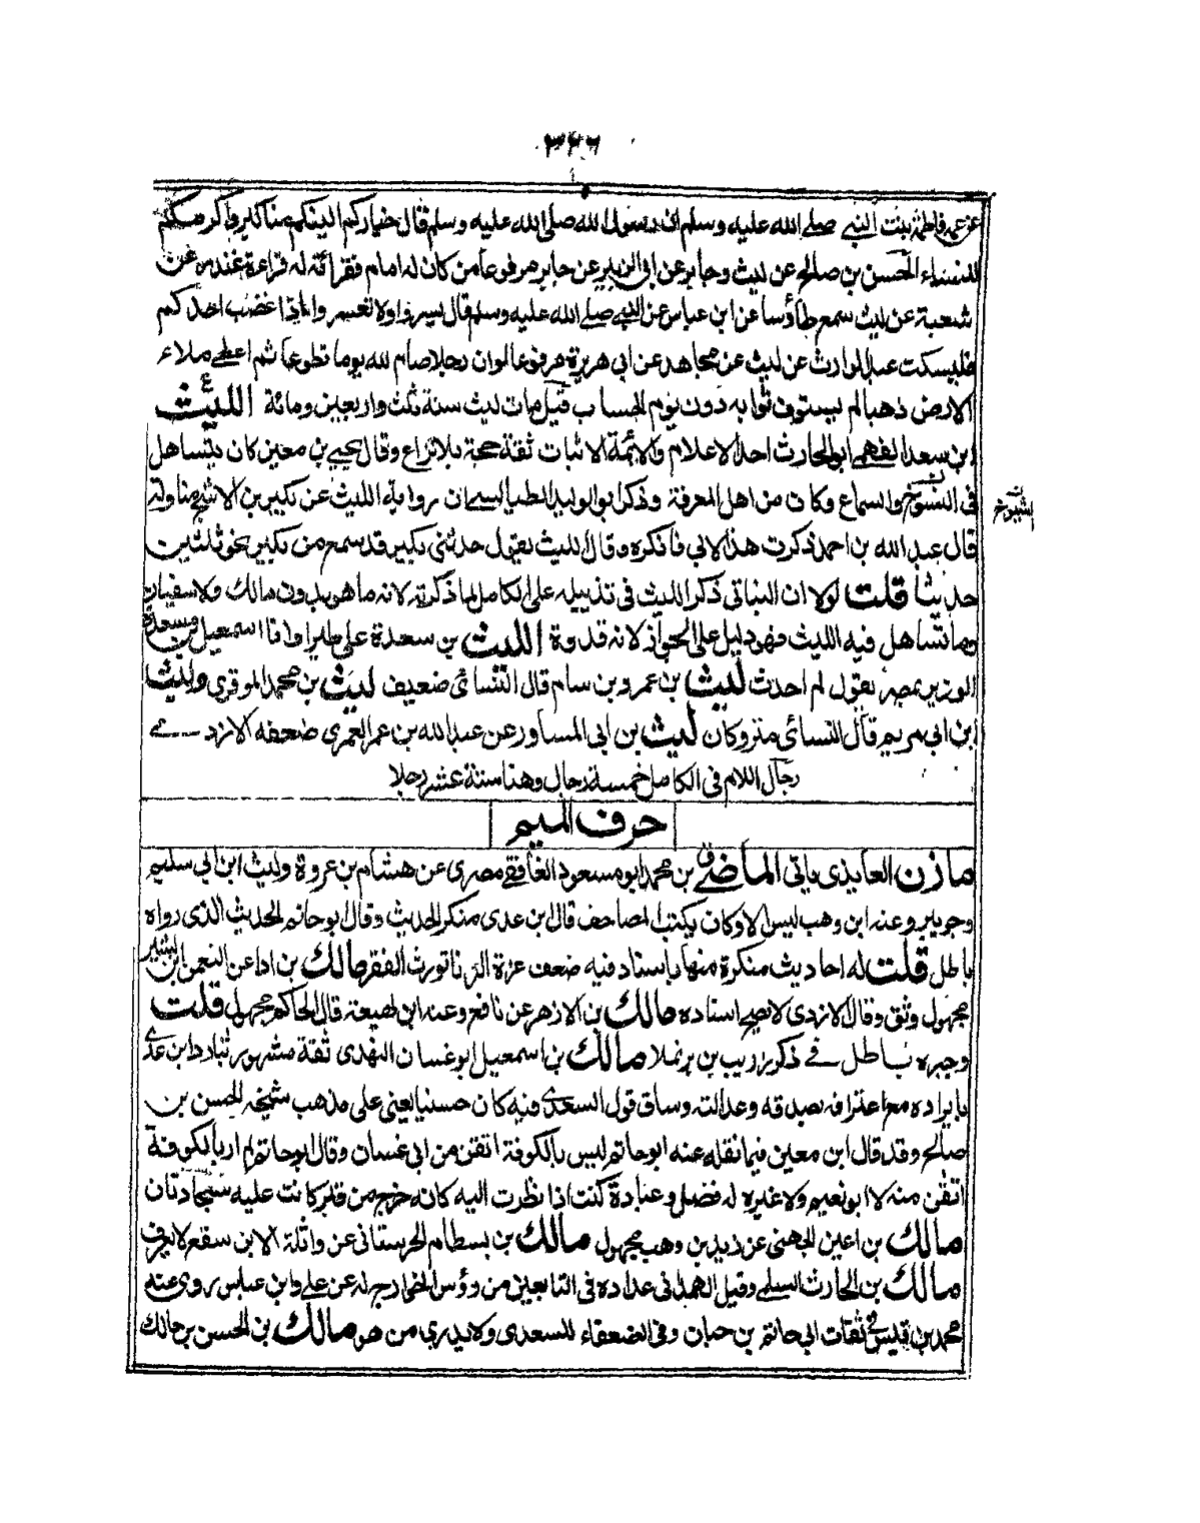 ٣٢٦
فاطمة بنت النبى صلے الله عليه وسلم ان رسول الله صلى الله عليه وسلم قال خياركم الينكم مناكب واكرمكم
للنساء الحسن بن صالح عن ليث وجابر عن ابى الزبير عن جابر مرفوعا من كان له امام فقرائته له قراءة غندر عن
شعبة عن ليث سمع طاؤسا عن ابن عباس عن النبے صلے الله عليه وسلم قال يسروا ولا تعسروا واذا غضب احدكم
فليسكت عبد الوارث عن ليث عن مجاهد عن ابى هريرة مرفوعا لو ان رجلا صام لله يوما تطوعا ثم اعطے ملاء
الارض ذهبا لم يستوف ثوابه دون يوم الحساب قيل مات ليث سنة ثلث واربعين ومائة الليث
ابن سعد الفهمے ابو الحارث احد الاعلام والائمة الاثبات ثقة حجة بلا نزاع وقال يحيے بن معين كان يتساهل
فى الشيوخ والسماع وكان من اهل المعرفة وذكر ابو الوليد الطيالسے ان رواية الليث عن بكير بن الاشج مناولة
الشيوخ
قال عبد الله بن احمد ذكرت هذا لابي فانكره وقال الليث يقول حدثنى بكير قد سمع من بكير نحو ثلثين
حديثا قلت لولا ان النباتى ذكر الليث فى تذييله على الكامل لما ذكرته لانه ما هو بدون مالك ولا سفيان
وما تساهل فيه الليث فهو دليل على الجواز لانه قدوة الليث بن سعدة على اسمعيل
الوزير بمصر يقول لم احدث ليث بن عمرو بن سام قال النسائى ضعيف ليث بن محمد الموقرى وليث
ابن ابى مريم قال النسائى متروكان ليث بن ابى المساور عن عبد الله بن عمر العمرى ضعفه الازدے
رجال اللام فى الكامل خمسة رجال وهنا ستة عشر رجلا
حرف الميم
مازن العابذى ياتى الماضے بن محمد ابو مسعود الغافقے مصرى عن هشام بن عروة وليث ابن ابى سليم
وجويبر وعنه ابن وهب ليس الا وكان يكتب المصاحف قال ابن عدى منكر الحديث وقال ابو حاتم الحديث الذى رواه
باطل قلت له احاديث منكرة منها باسناد فيه ضعف عزة الزنا تورث الفقر مالك بن ادا عن النعمن ابن البشير
مجهول وثق وقال الازدى لا يصح اسناده مالك بن الازهر عن نافع وعنه ابن لهيعة قال الحاكم مجهول قلت
وخبره باطل فے ذكر زريب بن برثملا مالك بن اسمعيل ابو غسان النهدى ثقة مشهور ابن عدى
بايراده مع اعترافه بصدقه وعدالته وساق قول السعدى فيه كان حسنيا يعنى على مذهب شيخه الحسن بن
صالح وقد قال ابن معين فيما نقله عنه ابو حاتم ليس بالكوفة اتقن من ابى غسان وقال ابو حاتم لم ار بالكوفة
اتقن منه لا ابو نعيم ولا غيره له فضل وعبادة كنت اذا نظرت اليه كانه خرج من قبر كانت عليه سجادتان
مالك بن اعين الجهنى عن زيد بن وهب مجهول مالك بن بسطام الحرستانى عن واثلة الابن سقع لا يعرف
مالك بن الحارث السلمے وقيل الهمدانى عداده فى التابعين من رؤس الخوارج له عن على وابن عباس روى عنه
محمد بن قيس فى ثقات ابى حاتم بن حبان وفى الضعفاء للسعدى ولا يدرى من هو مالك بن الحسن بن مالك